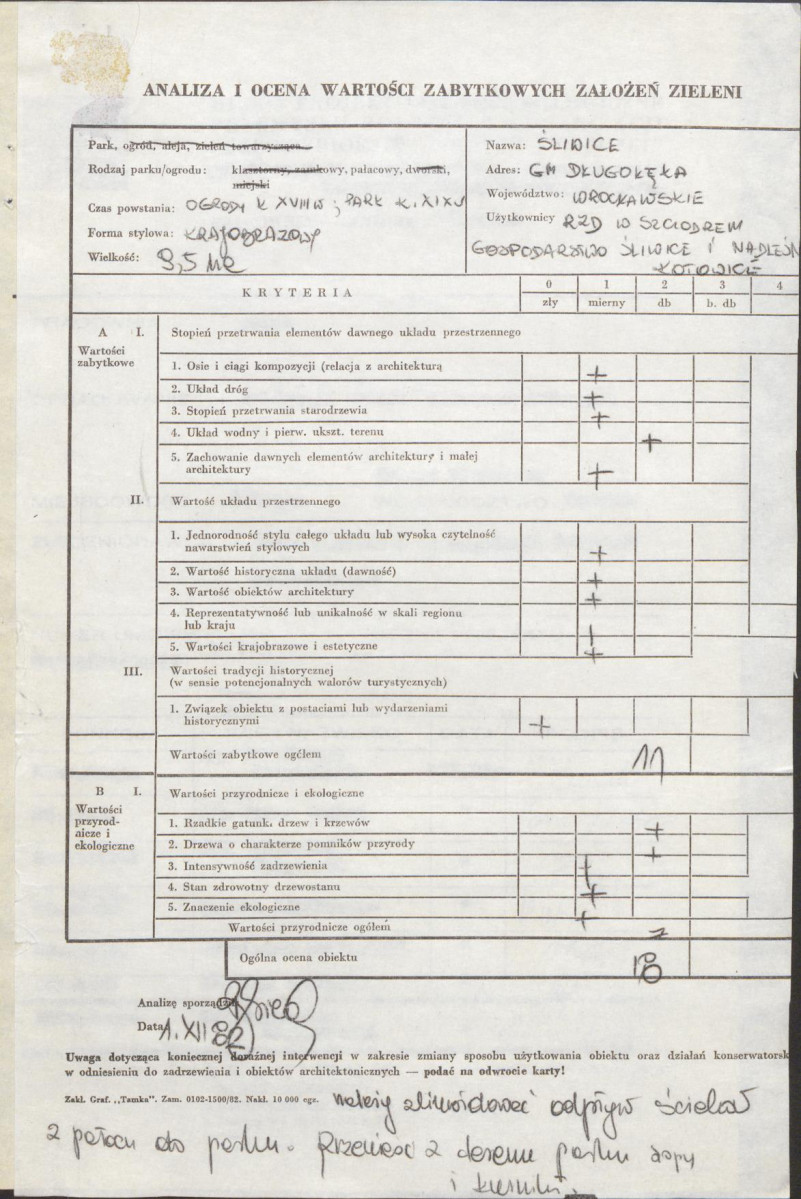 ANALIZA I OCENA WARTOŚCI ZABYTKOWYCH ZAŁOŻEŃ ZIELENI
Park, ogród, aleja, zieleń towarzysząca
Rodzaj parku/ogrodu: klasztorny, zamkowy, pałacowy, dworski,
miejski
Czas powstania: OGRODY K XVIII W; PARK K. XIX W
Forma stylowa: KRAJOBRAZOWY
Wielkość: 9,5 ha
Nazwa: ŚLIWICE
Adres: GM DŁUGOŁĘKA
Województwo: WROCŁAWSKIE
Użytkownicy RZD W SZCZODREM
GOSPODARSTWO ŚLIWICE I NADLEŚN
KOTOWICE
KRYTERIA
0 1 2 3 4
zły mierny db b. db
A I. Stopień przetrwania elementów dawnego układu przestrzennego
Wartości
zabytkowe
1. Osie i ciągi kompozycji (relacja z architekturą +
2. Układ dróg +
3. Stopień przetrwania starodrzewia +
4. Układ wodny i pierw. ukszt. terenu +
5. Zachowanie dawnych elementów architektury i małej
architektury +
II. Wartość układu przestrzennego
1. Jednorodność stylu całego układu lub wysoka czytelność
nawarstwień stylowych +
2. Wartość historyczna układu (dawność) +
3. Wartość obiektów architektury +
4. Reprezentatywność lub unikalność w skali regionu
lub kraju
5. Wartości krajobrazowe i estetyczne +
III. Wartości tradycji historycznej
(w sensie potencjonalnych walorów turystycznych)
1. Związek obiektu z postaciami lub wydarzeniami
historycznymi +
Wartości zabytkowe ogółem 11
B I. Wartości przyrodnicze i ekologiczne
Wartości
przyrod-
nicze i
ekologiczne
1. Rzadkie gatunki drzew i krzewów +
2. Drzewa o charakterze pomników przyrody +
3. Intensywność zadrzewienia +
4. Stan zdrowotny drzewostanu +
5. Znaczenie ekologiczne +
Wartości przyrodnicze ogółem 7
Ogólna ocena obiektu 18
Analizę sporządził
Data 1. XII 82
Uwaga dotycząca koniecznej doraźnej interwencji w zakresie zmiany sposobu użytkowania obiektu oraz działań konserwatorsk
w odniesieniu do zadrzewienia i obiektów architektonicznych — podać na odwrocie karty!
Zakł. Graf. „Tamka". Zam. 0102-1500/82. Nakł. 10 000 egz. Należy zlikwidować odpływ ścieków
z pałacu do parku. Przenieść z terenu parku
i